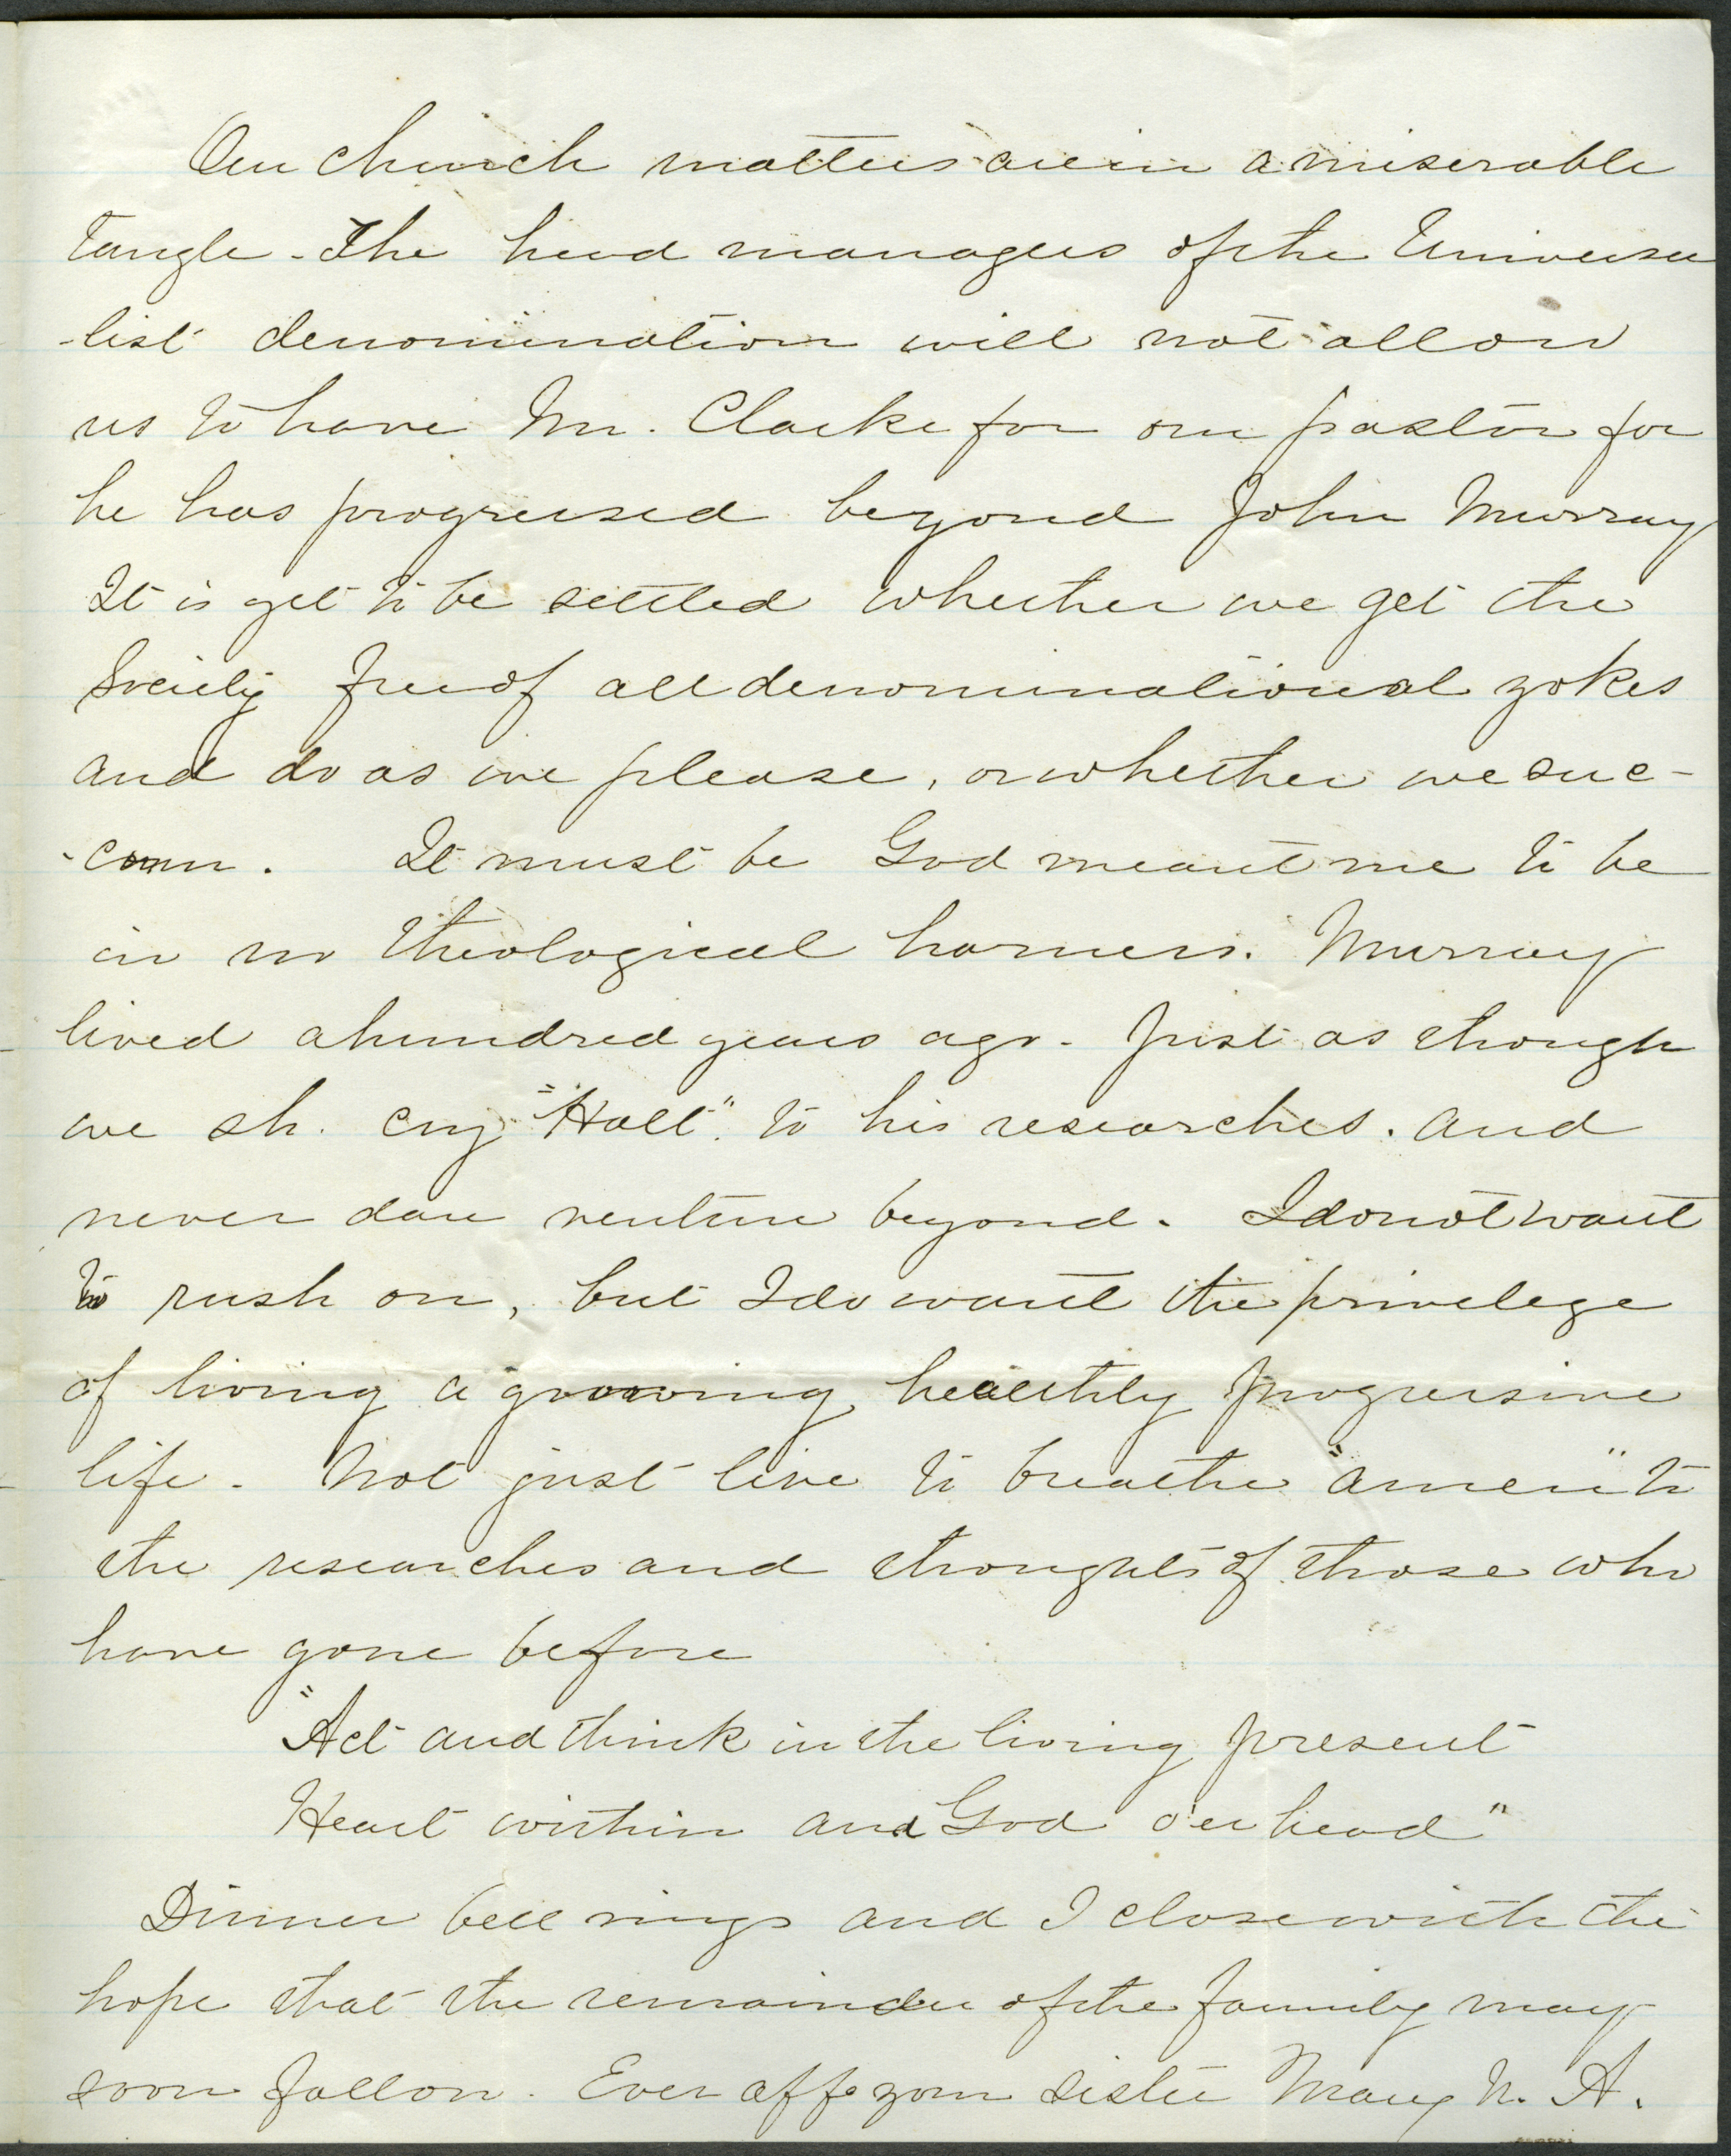 Our church matters are in a miserable
tangle - The head managers of the Universa
-list denomination will not allow
us to have Mr. Clarke for our pastor for
he has progressed beyond John Murray
It is yet to be settled whether we get the
Society free of all denominational yokes
and do as we please, or whether we suc-
-com. It must be God meant me to be
in no theological harness. Murray
lived a hundred years ago - Just as though
we sh. cry "Halt". to his researches. and
never dare venture beyond. I do not want
to rush on, but I do want the privelege
of living a growing, healthy progressive
life - Not just live to breathe "amen" to
the researches and thoughts of those who
have gone before
"Act and think in the living present
Heart within and God o'er head"
Dinner bell rings and I close with the
hope that the remainder of the family may
soon follow. Ever aff. your sister Mary N. A.